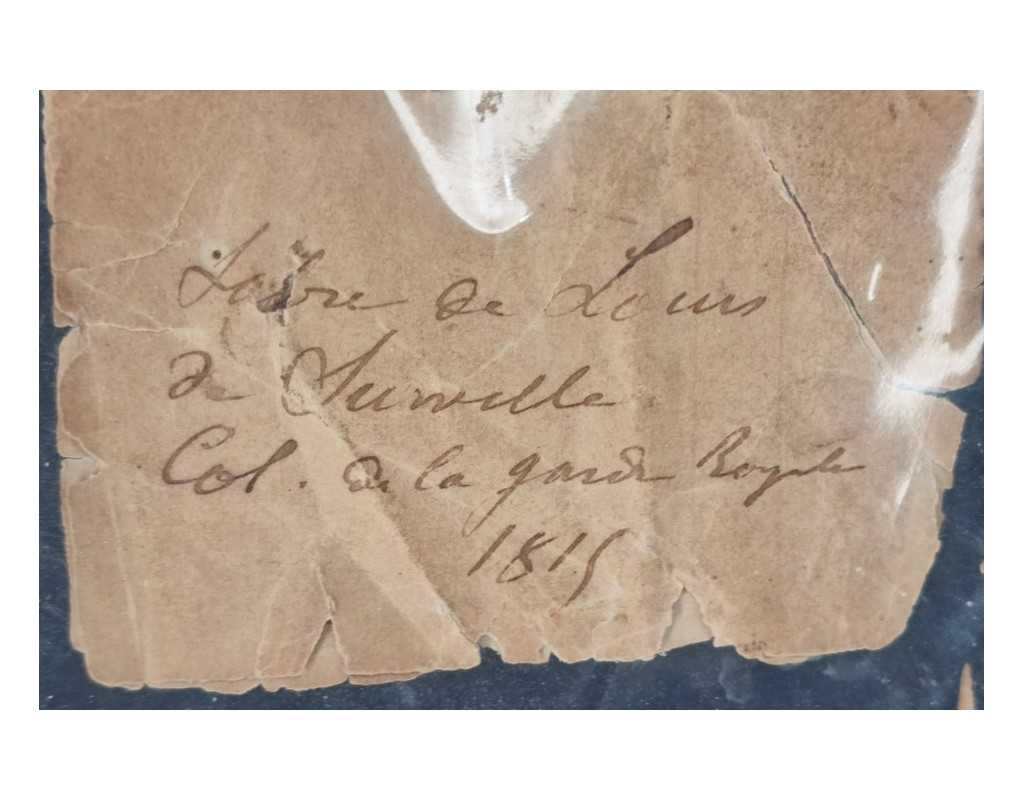 Sabre de Louis
de Surville
Col. de la garde Royale
1815